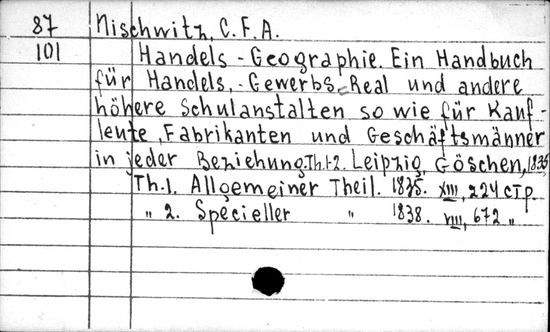 87 Nischwitz, C. F. A.
101 Handels - Geographie. Ein Handbuch
für Handels, - Gewerbs - Real und andere
höhere Schulanstalten so wie für Kauf-
leute, Fabrikanten und Geschäftsmänner
in jeder Beziehung. Th. 1-2. Leipzig, Göschen, 1835
Th. 1. Allgemeiner Theil. 1835. XIII, 224 стр.
„ 2. Specieller „ 1838. VIII, 672 „